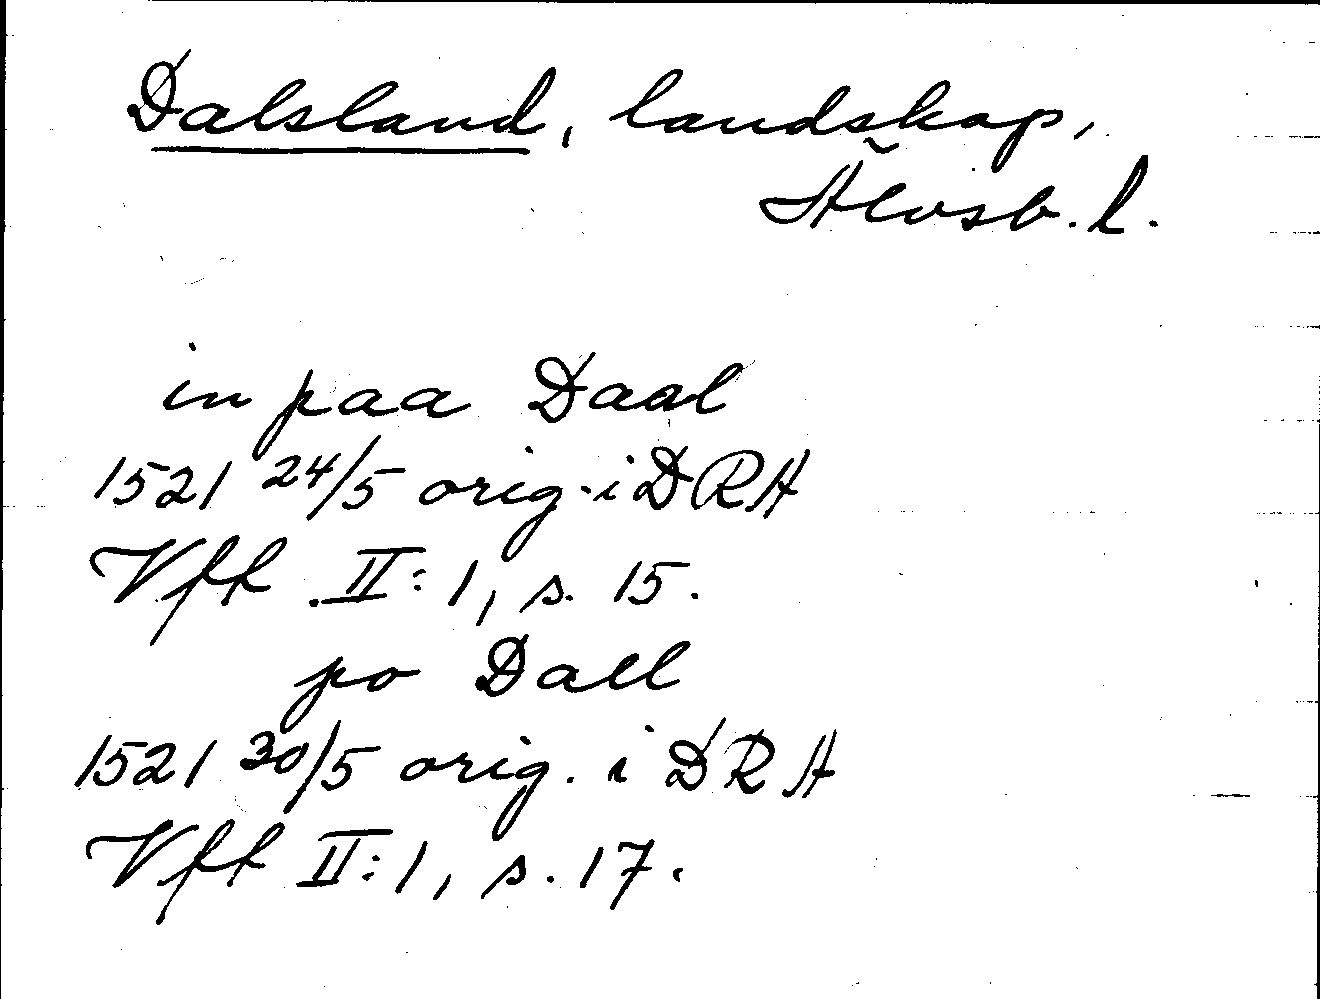 Dalsland, landskap,
Älvsb. l.
in paa Daal
1521 24/5 orig. i DRA
Vfk II:1, s. 15.
po Dall
1521 30/5 orig. i DRA
Vfk II:1, s. 17.